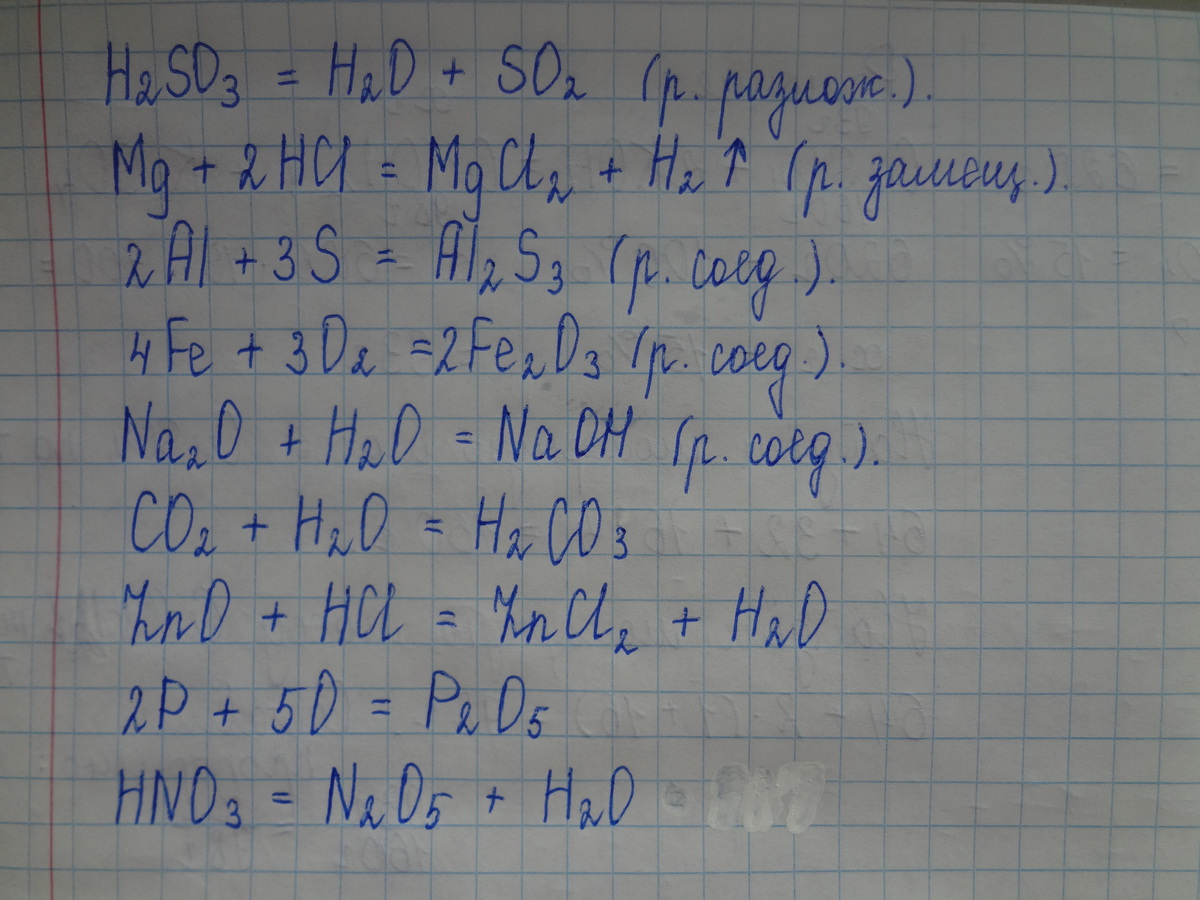 H₂SO₃ = H₂O + SO₂ (р. разлож.).
Mg + 2HCl = MgCl₂ + H₂↑ (р. замещ.).
2Al + 3S = Al₂S₃ (р. соед.).
4Fe + 3O₂ =2Fe₂O₃ (р. соед.).
Na₂O + H₂O = NaOH (р. соед.).
CO₂ + H₂O = H₂CO₃
ZnO + HCl = ZnCl₂ + H₂O
2P + 5O = P₂O₅
HNO₃ = N₂O₅ + H₂O